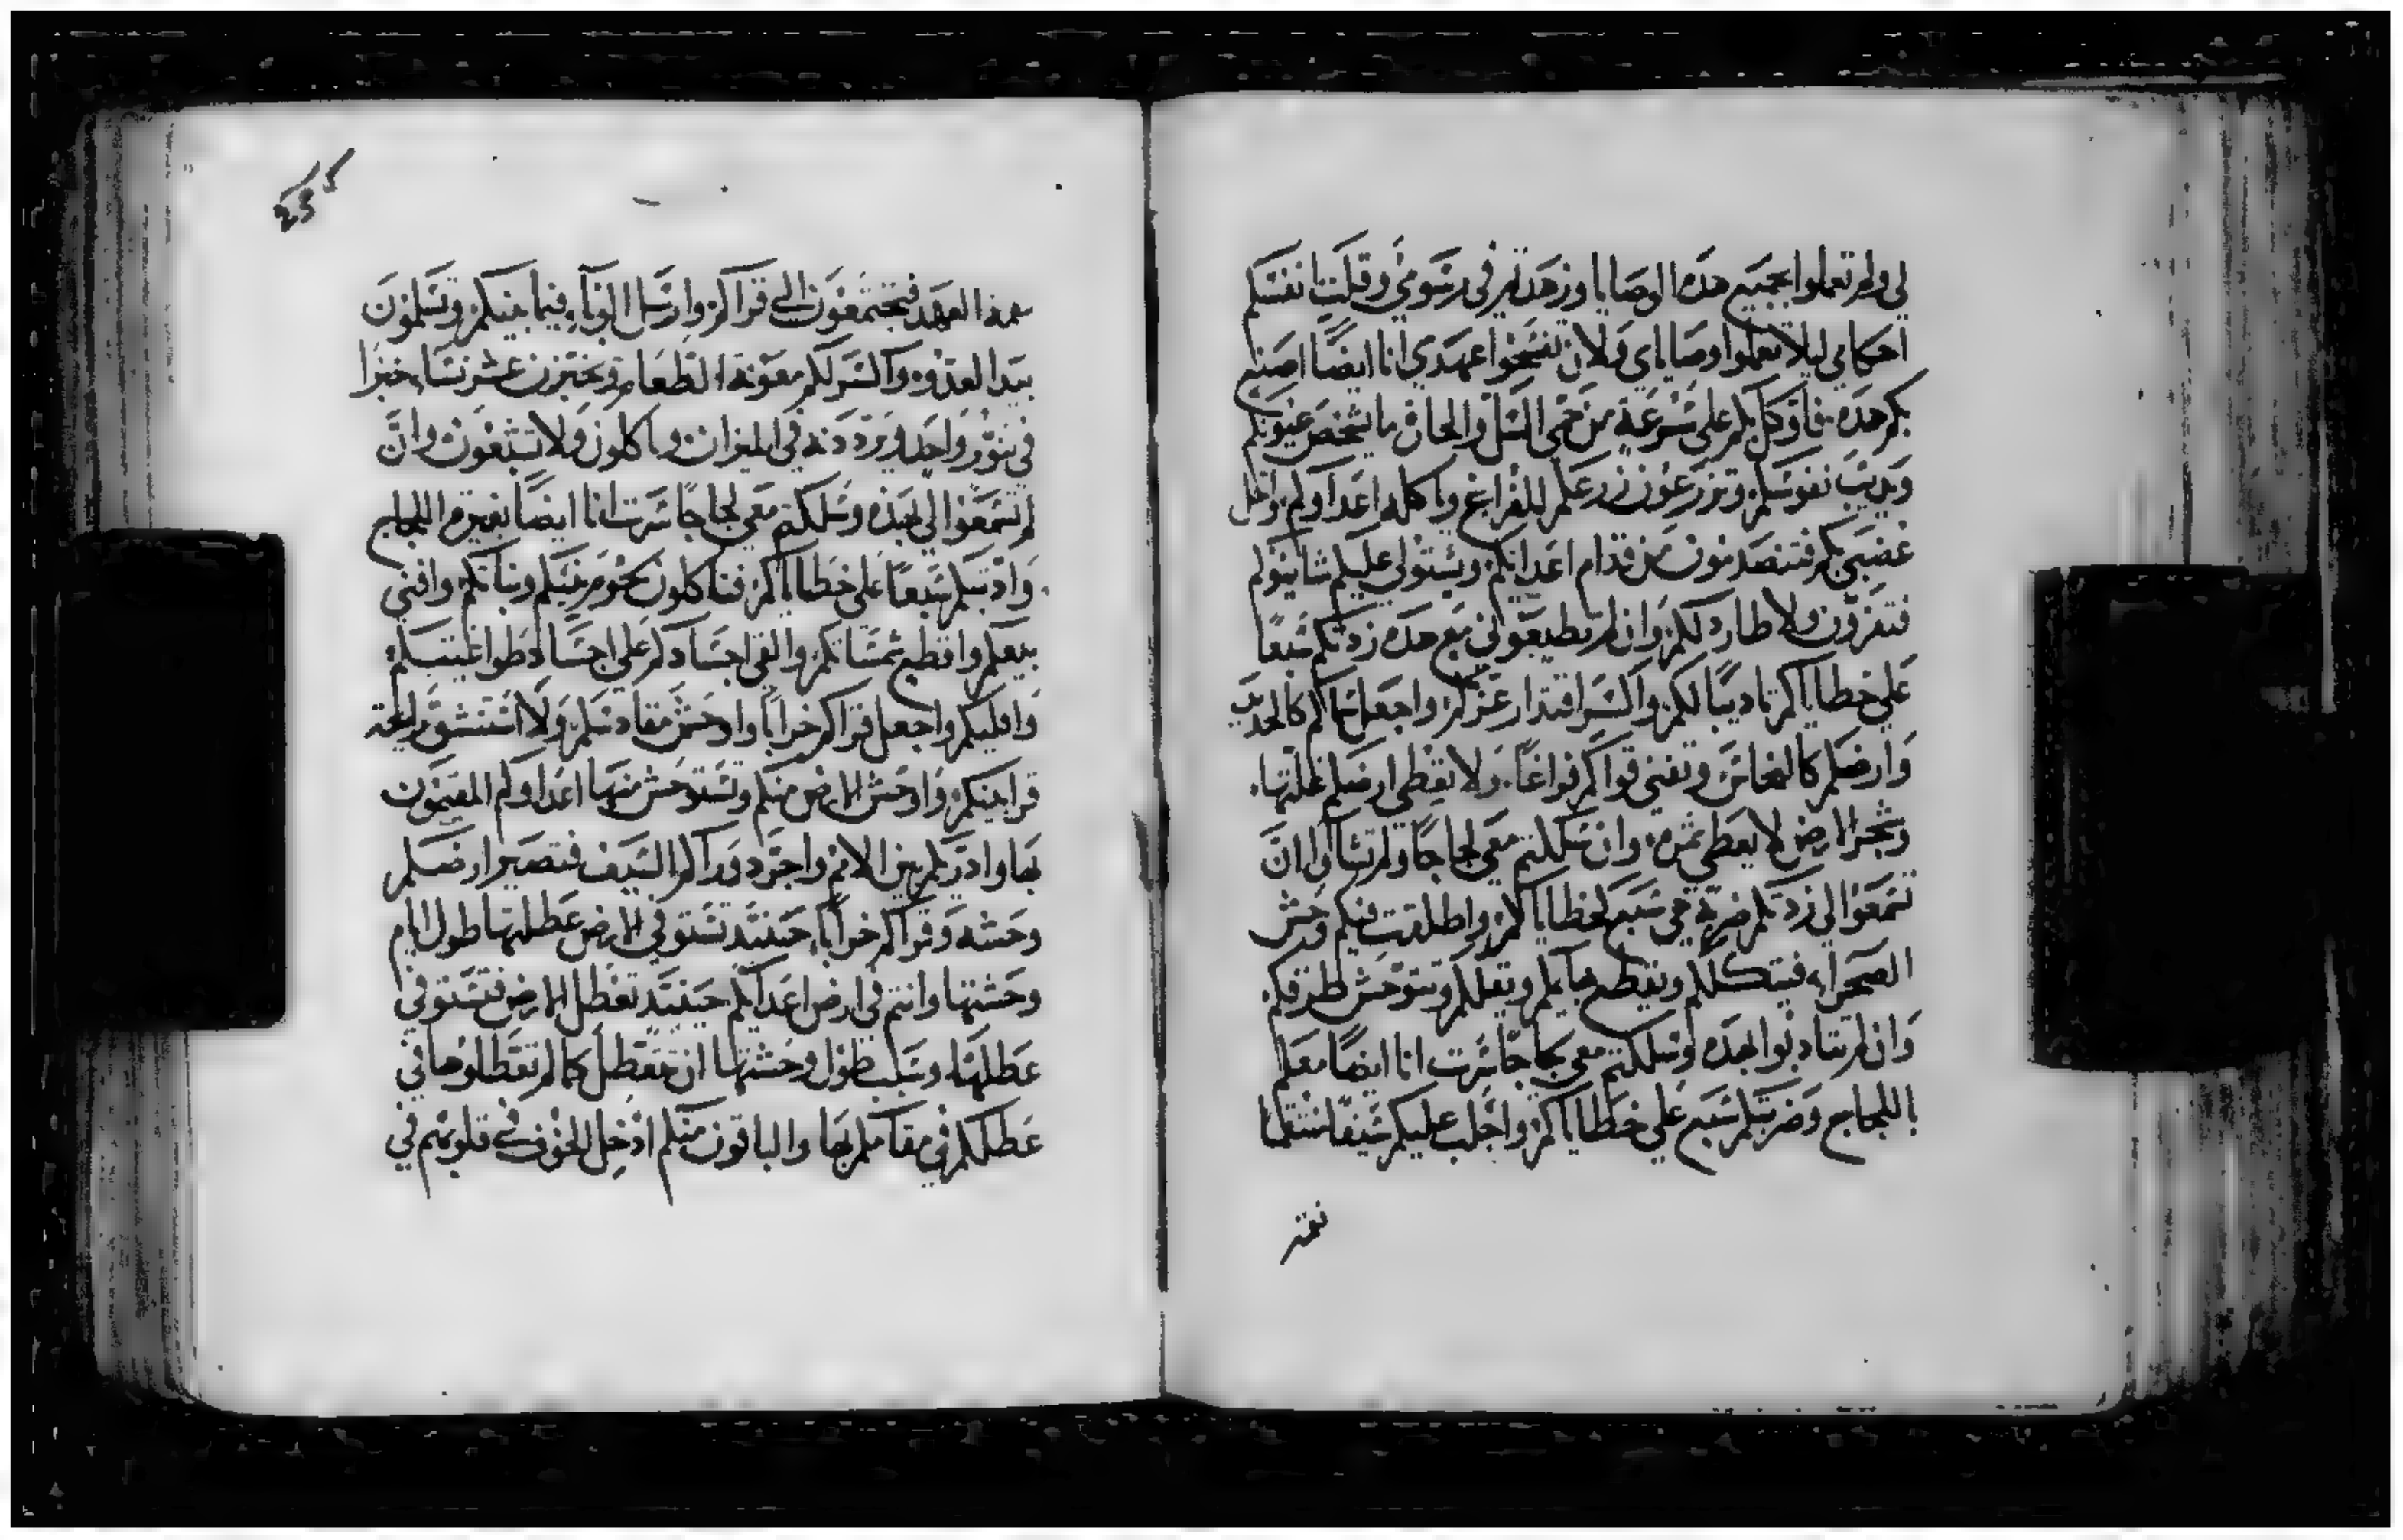 لي ولم تعملوا بجميع هذه الوصايا وزهدتم في رسومي وقلت انفسكم
احكامي ليلا تعملوا وصاياي ولان تفسخوا عهدي انا ايضًا اصنع
بكم هذه فاوكل بكم على سرعة من حمى السل والحاق ما يشخص عيونكم
ويديب نفوسكم وتزرعون زرعكم للفراغ وياكله اعداوكم واحل
غضبي بكم فتنصدمون من قدام اعدايكم ويستولى عليكم شانيوكم
فتفرون ولا طارد لكم وان لم تطيعوني مع هذه زدتكم سبعًا
على خطاياكم تاديبًا لكم واكسر اقتدار عزكم واجعل سماكم كالحديد
وارضكم كالنحاس وتفنى قواكم فراغًا ولا تعطي ارضكم غلتها
وشجر الارض لا يعطي ثمره وان سلكتم معي لجاجًا ولم تشاوا ان
تسمعوا لي زدتكم ضربة هي سبع لخطاياكم واطلقت فيكم وحش
الصحراء فيتكلكم ويقطع بهايمكم ويقللكم وتتوحش طرقكم
وان لم تتادبوا بهذه وسلكتم معي لجاجًا سرت انا ايضًا معكم
باللجاج وضربتكم سبع على خطاياكم واجلب عليكم سيفًا منتقمًا
نقمة
بهذا العهد فتجتمعون الى قراكم وارسل الوباء فيما بينكم وتسلمون
بيد العدو واكسر لكم معونة الطعام ويختبزن عشر نساء خبزا
في تنور واحد ويرددنه في الميزان وياكلون ولا تشبعون وان
لم تسمعوا لي بهذه وسلكتم معي لجاجًا سرت انا ايضًا بغيرة اللجاج
وادبتكم سبعًا على خطاياكم فتاكلون لحوم بنيكم وبناتكم وافني
بيعكم واقطع شمساتكم والقي اجسادكم على اجساد طواغيتكم
واقليكم واجعل قراكم خرابًا واوحش مقادسكم ولا استنشق رايحة
قرابينكم واوحش الارض منكم وتستوحش منها اعداوكم المقيمون
بها وادريكم بين الامم واجرد وراكم السيف فتصير ارضكم
وحشه وقراكم خرابًا حينيذ تستوفي الارض عطلتها طول ايام
وحشتها وانتم في ارض اعدايكم حينيذ تعطل الارض فتستوفي
عطلتها وسلب طول وحشتها ان تتعطل كما لم تعطلوها في
عطلكم في مقامكم بها والباقون منكم ادخل الخوف في قلوبهم في